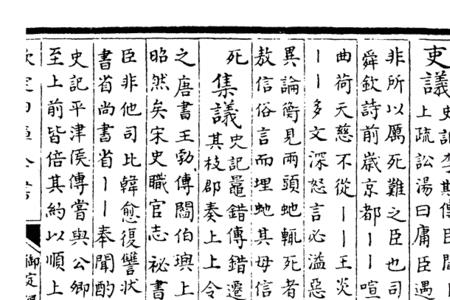 吏議
上疏訟湯曰庸臣遇
非所以厲死難之臣也司
舜欽詩前歲京都丨丨喧
曲荷天慈不從丨丨王炎
丨丨多文深怒言必溢惡
異論衡見兩頭虵輒死者
敖信俗言而埋虵其母信
死 集議 史記鼂錯傳錯遷
其枝郡奏上上令
之唐書王勃傳閻伯璵上
昭然矣宋史職官志祕書
臣非他司比韓愈復讐狀
書省尚書省丨丨奉聞酌
史記平津侯傳嘗與公卿
至上前皆倍其約以順上
御定